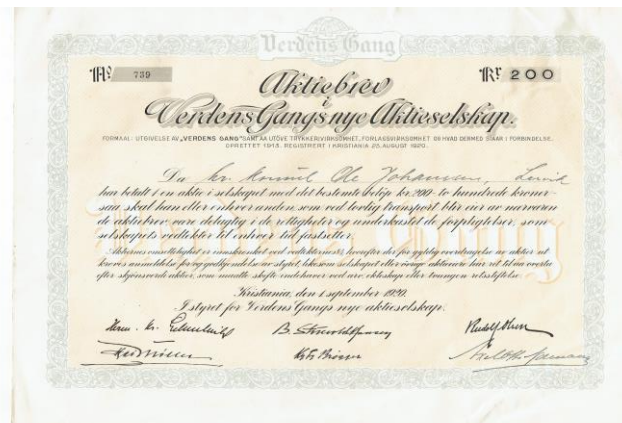 Verdens Gang
No 739
Kr 200
Aktiebrev
i
Verdens Gangs nye Aktieselskap.
FORMAAL: UTGIVELSE AV „VERDENS GANG“ SAMT AA UTÖVE TRYKKERVIRKSOMHET, FORLAGSVIRKSOMHET OG HVAD DERMED STAAR I FORBINDELSE.
OPRETTET 1918. REGISTRERT I KRISTIANIA 25. AUGUST 1920.
Da hr. konsul Ole Johansen,
har betalt 1 en aktie i selskapet med det bestemte beløp kr. 200- to hundrede kroner-
saa skal han eller enhver anden, som ved lovlig transport blir eier av nærværen
de aktiebrev, være delagtig i de rettigheter og underkastet de forpligtelser, som
selskapets vedtækter til enhver tid fastsætter.
Aktiernes omsættelighet er indskrænket ved vedtækternes § hvorefter der for gyldig overdragelse av aktier ut
kræves anmeldelse for og godkjendelse av styret, likesom selskapet eller övrige aktieeiere har ret til at overta
efter skjönsverdi aktier, som maatte skifte indehaver ved arv, ekteskap eller tvungen retsstiftelse.
Kristiania, den 1 september 1920.
I styret for Verdens Gangs nye aktieselskap.